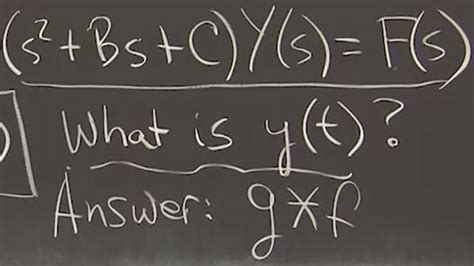 (s²+Bs+C)Y(s)=F(s)
What is y(t)?
Answer: g*f